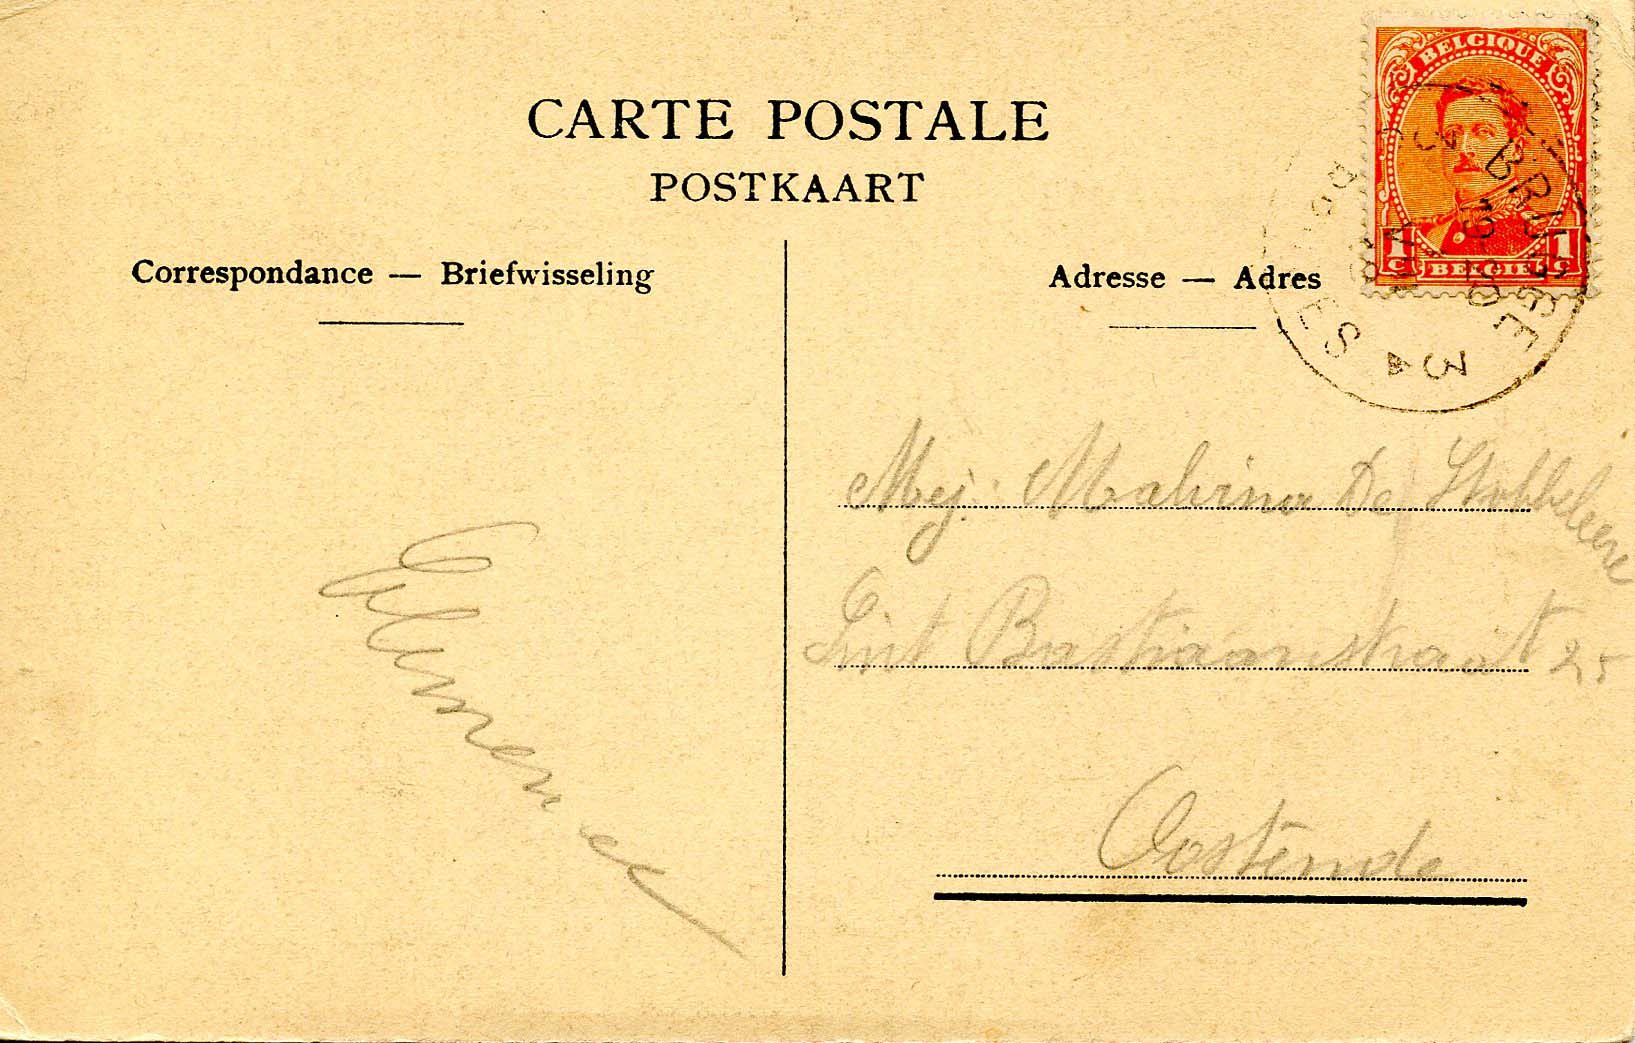 CARTE POSTALE
POSTKAART
Correspondance — Briefwisseling
Adresse — Adres
BELGIQUE
1 C 1 C
BELGIË
BRUGGE
3A
Mej. Malvina De Stobbeleere
Sint Bastiaanstraat 25
Oostende
Clemence